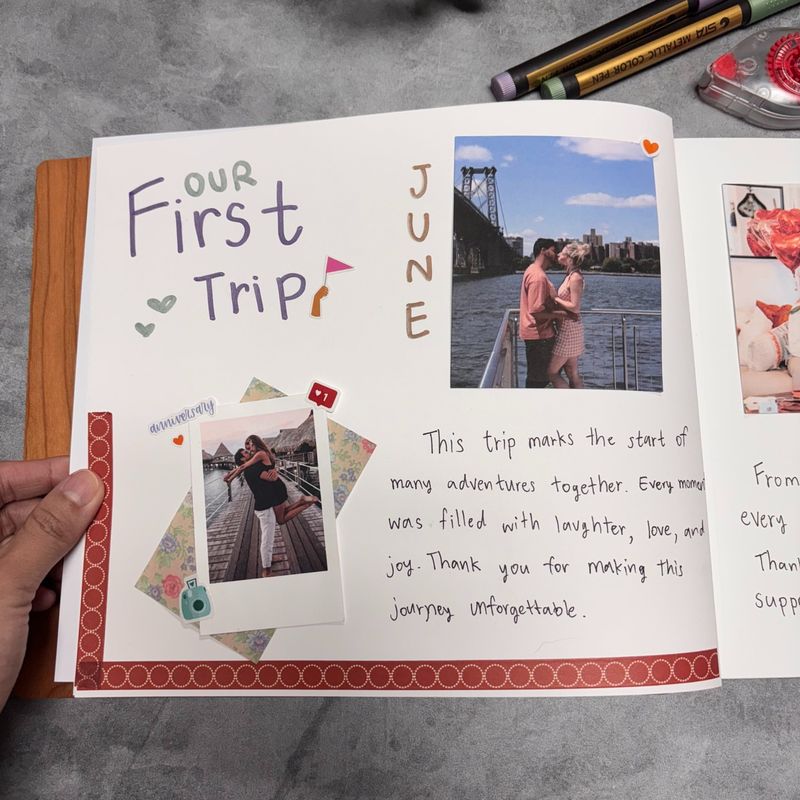 OUR
First
Trip
JUNE
anniversary
1
This trip marks the start of
many adventures together. Every moment
was filled with laughter, love, and
joy. Thank you for making this
journey unforgettable.
From
every
Than
suppo
STA METALLIC COLOR PEN